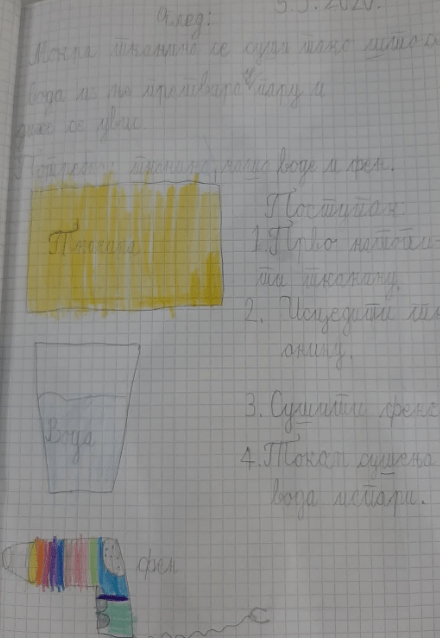 Оглед: 5.5.2020.
Мокра тканина се суши тако што се
вода из ње претвара у пару и
диже се увис.
Потребно: тканина, чаша воде и фен.
Тканина
Поступак:
1. Прво натопи-
ти тканину.
2. Исцедити тк-
анину.
Вода
3. Сушити фено
4. Током сушења
вода испари.
фен